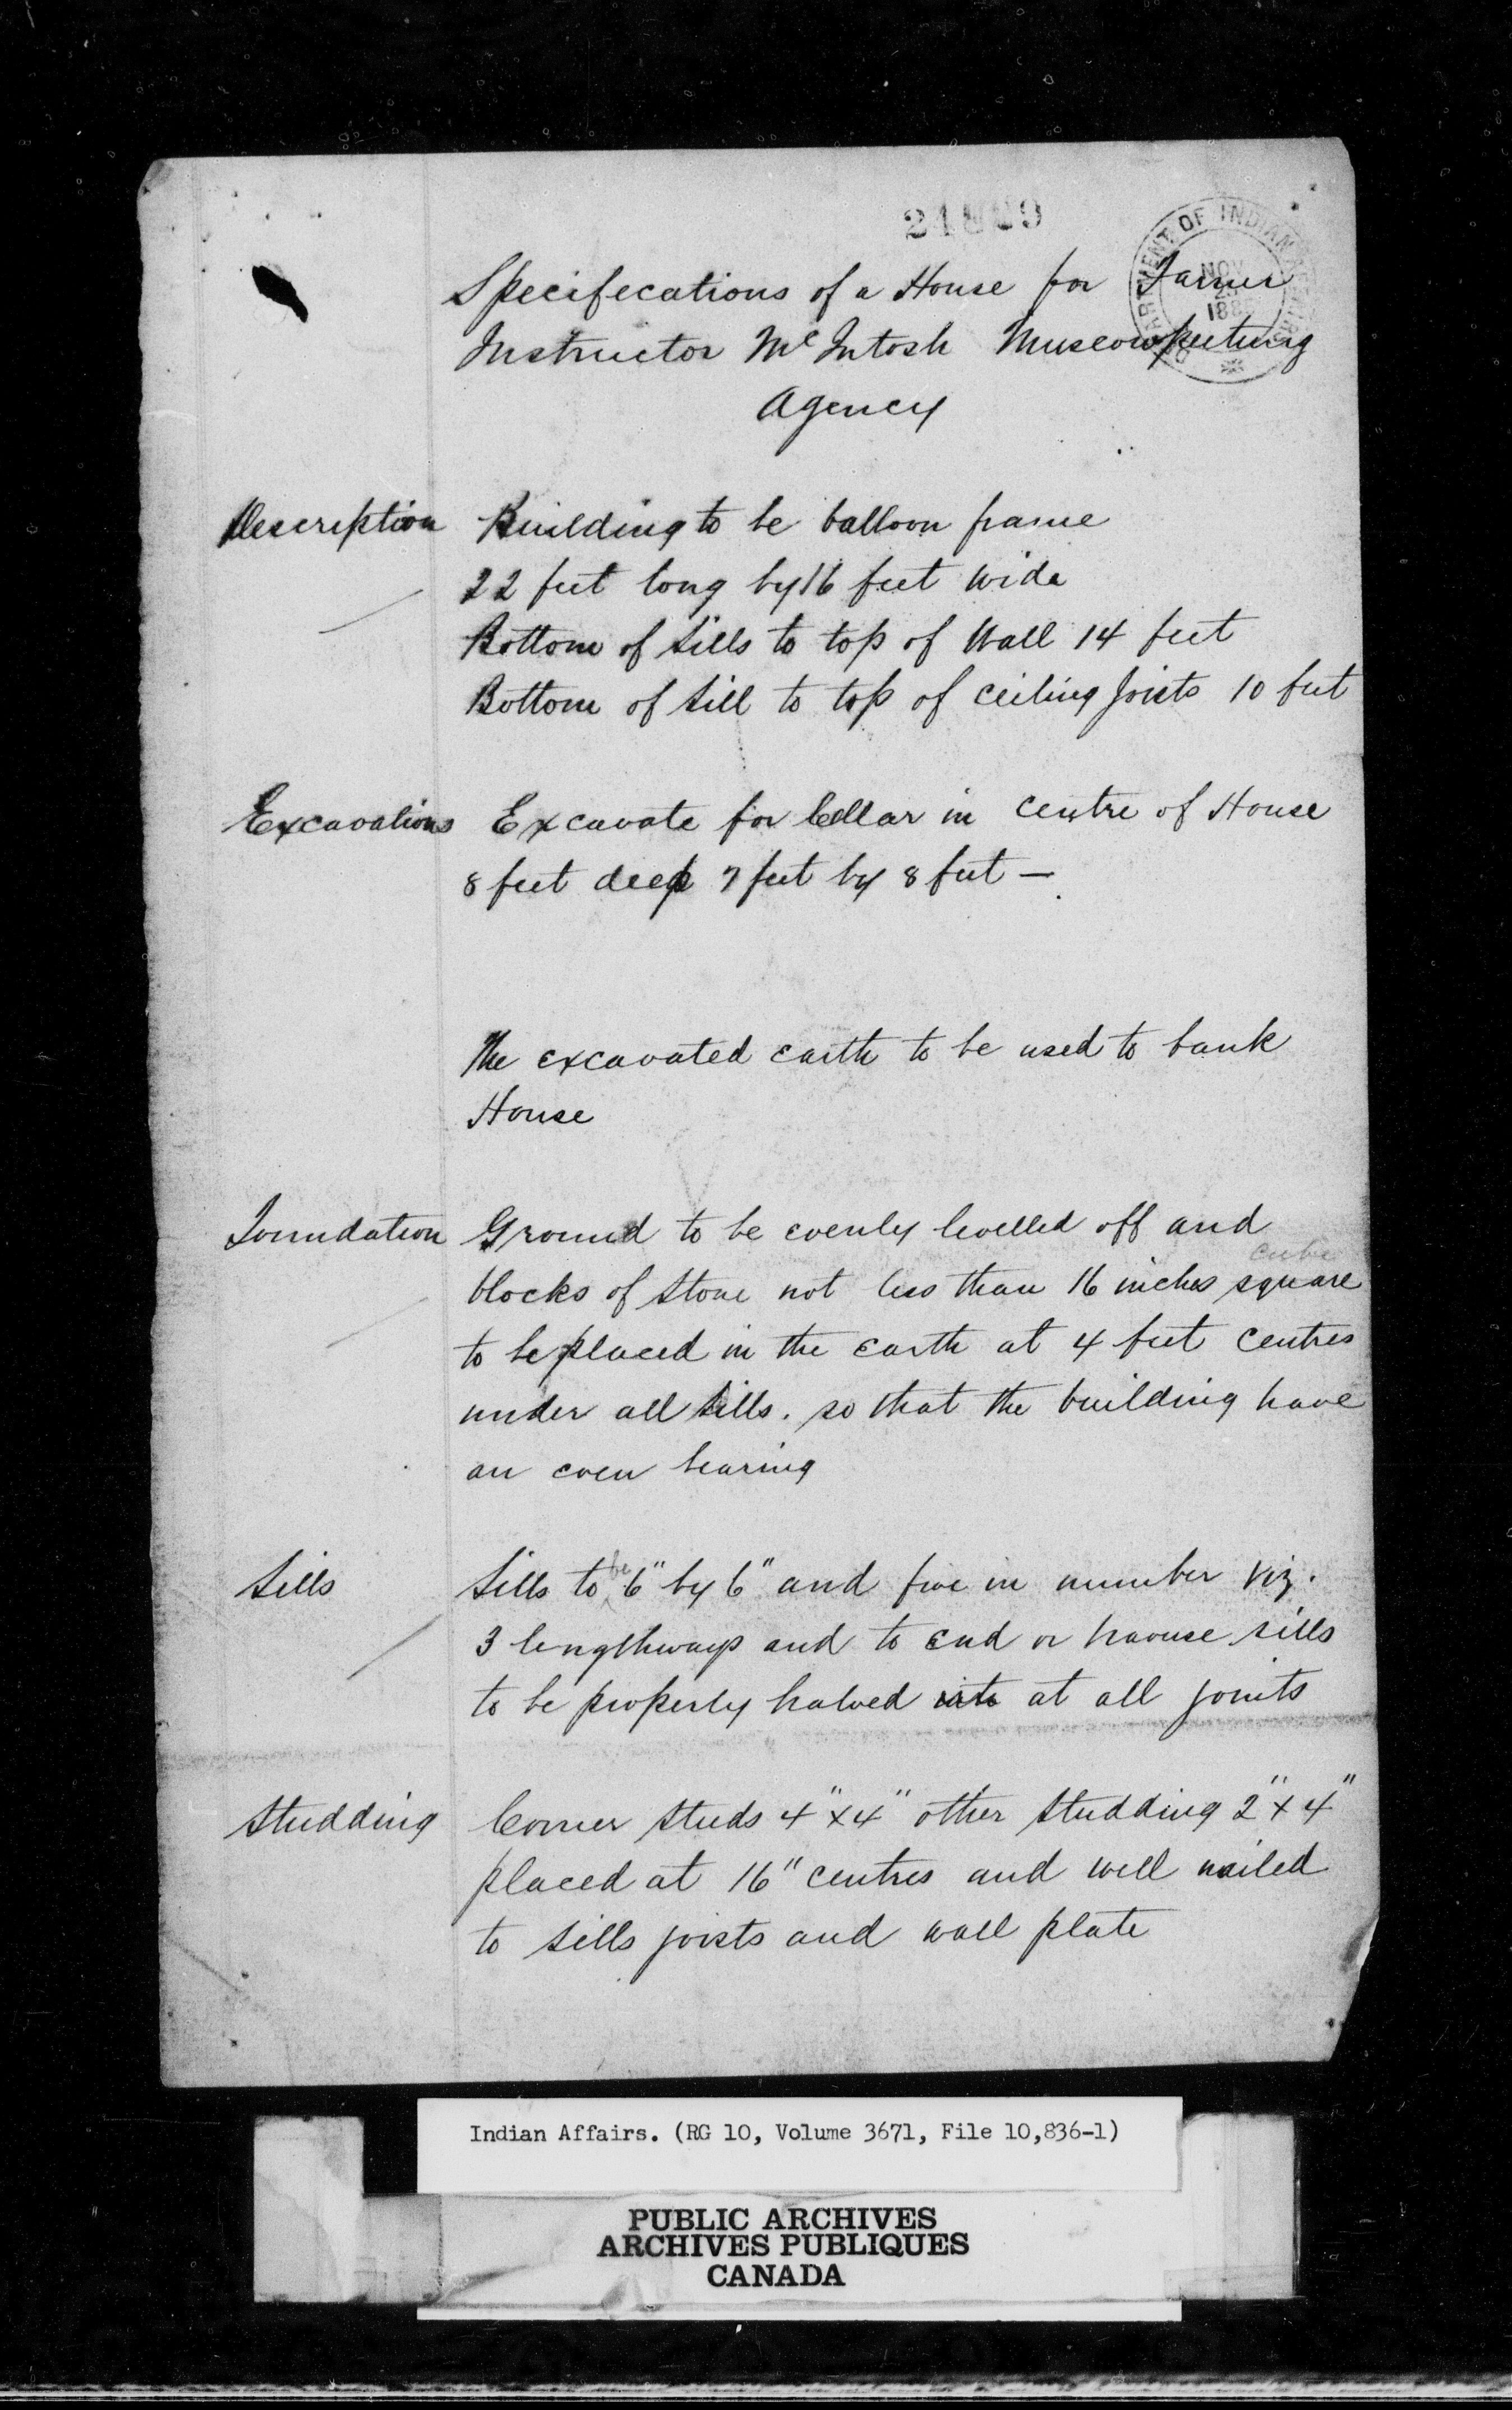 Specifecations of a House for Farmer
Instructor Mc Intosh Muscowpeetung
Agency
DEPARTMENT OF INDIAN
NOV
Description Building to be balloon frame
22 feet long by 16 feet wide
Bottom of Sills to top of Wall 14 feet
Bottom of Sill to top of ceiling joists 10 feet
Excavations Excavate for Cellar in centre of House
8 feet deep 7 feet by 8 feet —
The excavated earth to be used to bank
House
Foundation Ground to be evenly levelled off and
cube
blocks of stone not less than 16 inches square
to be placed in the earth at 4 feet centres
under all sills. so that the building have
an even bearing
Sills Sills to be 6" by 6" and five in number viz.
3 lengthways and to end or sills
to be properly halved into at all joints
Studding Corner studs 4" x 4" other studding 2" x 4"
placed at 16" centres and well nailed
to sills joists and wall plate
Indian Affairs. (RG 10, Volume 3671, File 10,836-1)
PUBLIC ARCHIVES
ARCHIVES PUBLIQUES
CANADA